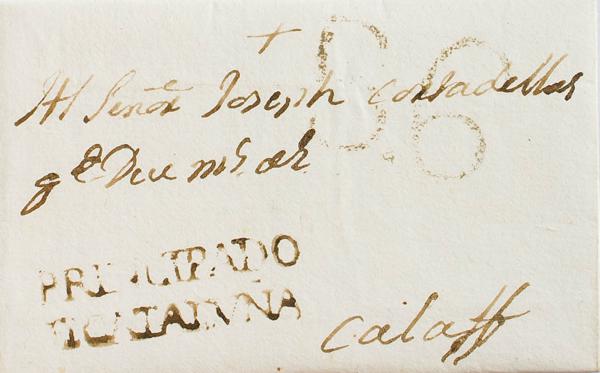 +
Al Señor Joseph Cortadellas
ge Dice ms as
PRINCIPADO
CATALVÑA
Calaff